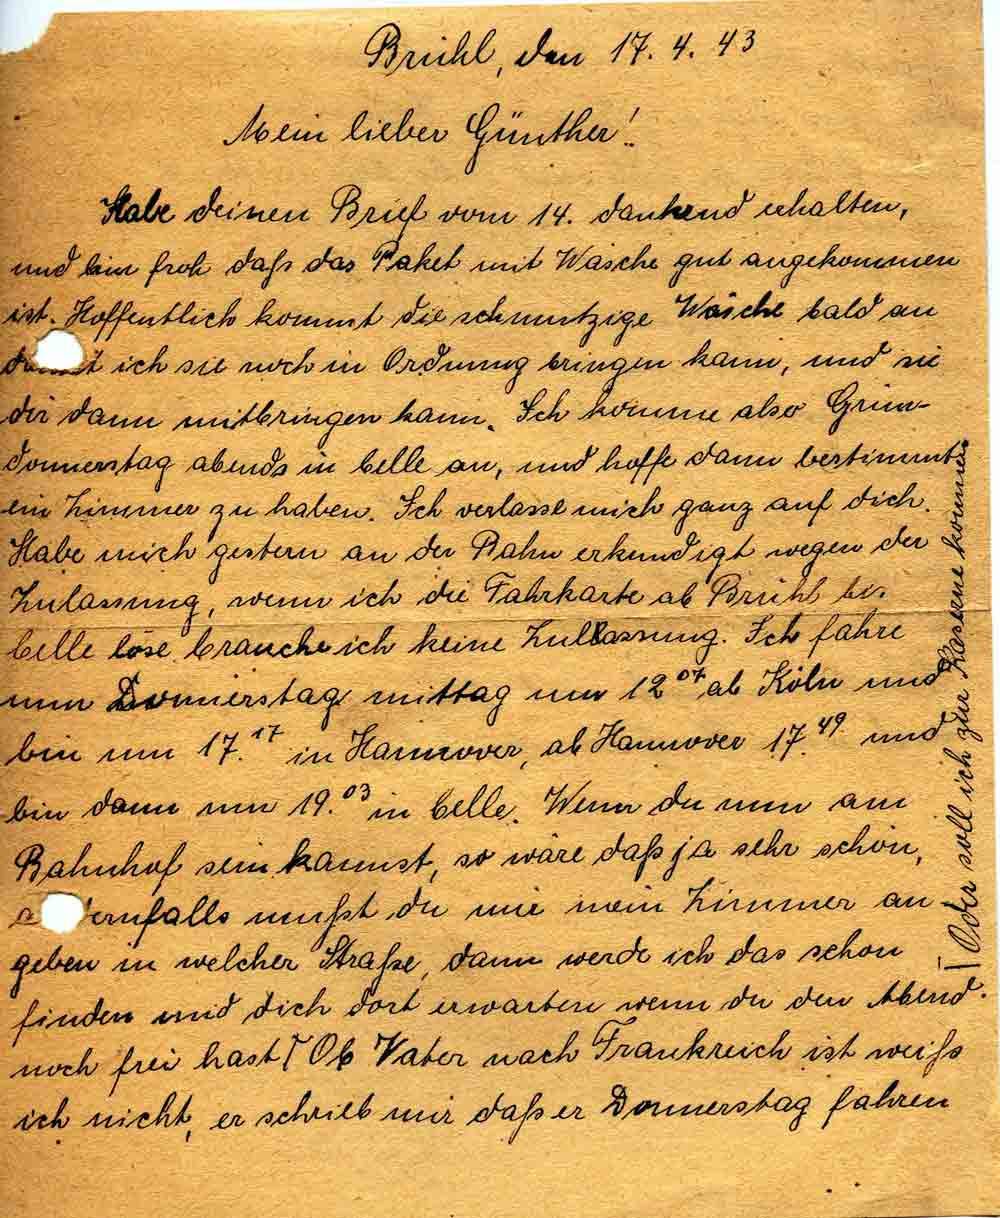 Brühl, den 17. 4. 43
Mein lieber Günther!
Habe deinen Brief vom 14. dankend erhalten,
und bin froh daß das Paket mit Wäsche gut angekommen
ist. Hoffentlich kommt die schmutzige Wäsche bald an
ich sie noch in Ordnung bringen kann, und sie
dir dann mitbringen kann. Ich komme also Grün-
donnerstag abends in Celle an, und hoffe dann bestimmt
ein Zimmer zu haben. Ich verlasse mich ganz auf dich.
Habe mich gestern an der Bahn erkundigt wegen der
Zulassung, wenn ich die Fahrkarte ab Brühl bis
Celle löse brauche ich keine Zulassung. Ich fahre
nun Donnerstag mittag um 12 07 ab Köln und
bin um 17.17 in Hannover, ab Hannover 17.49 und
bin dann um 19.03 in Celle. Wenn du nun am
Bahnhof sein kannst, so wäre daß ja sehr schön,
mußt du mir mein Zimmer an
geben in welcher Straße, dann werde ich das schon
finden und dich dort erwarten wenn du den Abend
noch frei hast. Ob Vater nach Frankreich ist weiß
ich nicht, er schrieb mir daß er Donnerstag fahren
Oder soll ich zur Kaserne kommen.